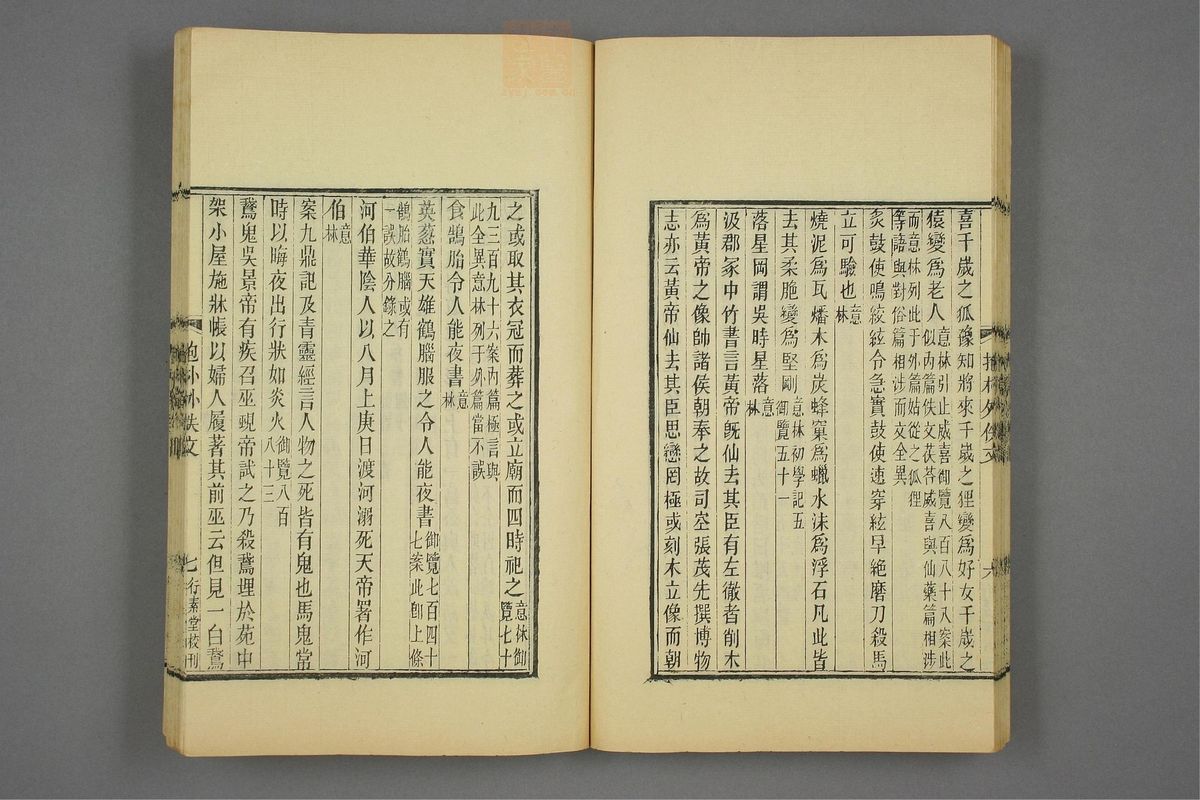 喜千歲之狐豫知將來千歲之狸變爲好女千歲之
猿變爲老人意林引止威喜御覽八百八十八案此似内篇佚文茯苓威喜與仙藥篇相涉
而意林列此于外篇姑從之狐狸等語與對俗篇相涉而文全異
炙鼓使鳴絞絃令急實鼓使速穿絃早絶磨刀殺馬
立可驗也意林
燒泥爲瓦燔木爲炭蜂窠爲蠟水沫爲浮石凡此皆
去其柔脆變爲堅剛意林初學記五御覽五十一
落星岡謂吳時星落意林
汲郡冢中竹書言黃帝旣仙去其臣有左徹者削木
爲黃帝之像帥諸侯朝奉之故司空張茂先撰博物
志亦云黃帝仙去其臣思戀罔極或刻木立像而朝
之或取其衣冠而葬之或立廟而四時祀之意林御覽七十
九三百九十六案内篇極言與此全異意林列于外篇當不誤
食鵠胎令人能夜書意林
英蒾實天雄鶴腦服之令人能夜書御覽七百四十七案此卽上條
鶴胎鶴腦或有一誤故分錄之
河伯華陰人以八月上庚日渡河溺死天帝署作河
伯意林
案九鼎記及青靈經言人物之死皆有鬼也馬鬼常
時以晦夜出行狀如炎火御覽八百八十三
鵞鬼吳景帝有疾召巫覡帝試之乃殺鵞埋於苑中
架小屋施牀帳以婦人履著其前巫云但見一白鵞
抱朴外佚文
七
行素堂校刊